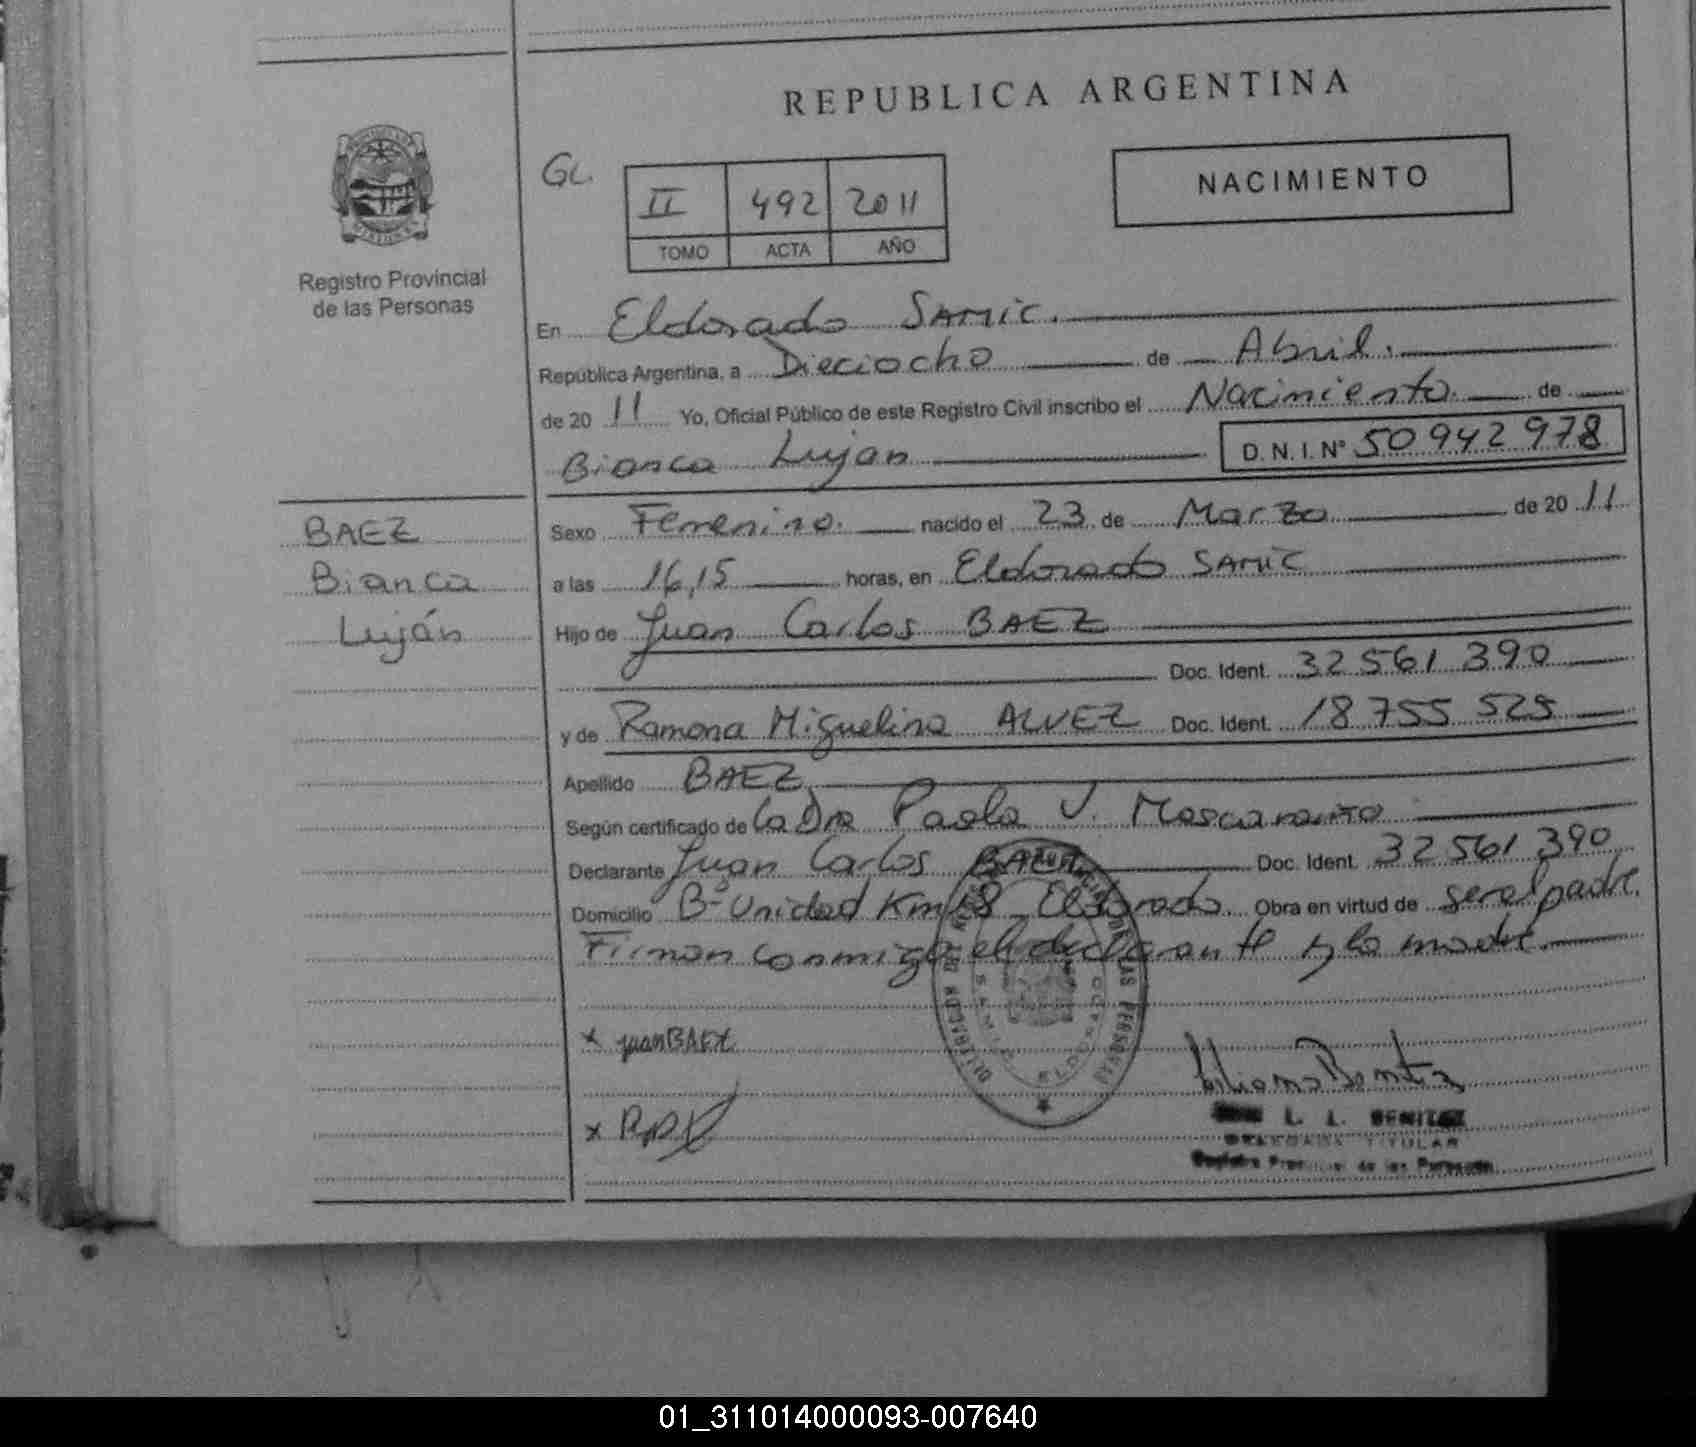 REPUBLICA ARGENTINA
Registro Provincial
de las Personas
GL.
II 492 2011
TOMO ACTA AÑO
NACIMIENTO
En Eldorado SAMIC.
República Argentina, a Dieciocho de Abril.
de 20 11 Yo, Oficial Público de este Registro Civil inscribo el Nacimiento de
Bianca Lujan D.N.I.Nº 50 942 978
BAEZ
Bianca
Luján
Sexo Femenino. nacido el 23 de Marzo de 20 11
a las 16,15 horas, en Eldorado SAMIC
Hijo de Juan Carlos BAEZ
Doc. Ident. 32 561 390
y de Ramona Miguelina ALVEZ Doc. Ident. 18 755 525
Apellido BAEZ
Según certificado de La Dra Paola V.
Declarante Juan Carlos BAEZ Doc. Ident. 32 561 390
Domicilio Bº Unidad Km 18 Eldorado. Obra en virtud de ser el padre.
Firman conmigo el declarante y la madre.
x juan BAEZ
x
Liliana Benitez
L. L. BENITEZ
DELEGADA TITULAR
Registro Provincial de las Personas
01_311014000093-007640